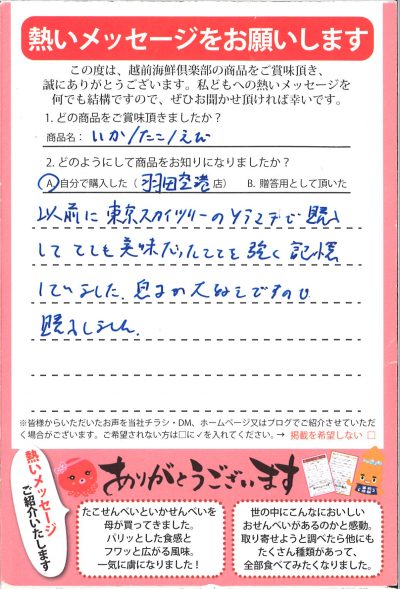 熱いメッセージをお願いします
この度は、越前海鮮倶楽部の商品をご賞味頂き、
誠にありがとうございます。私どもへの熱いメッセージを
何でも結構ですので、ぜひお聞かせ頂ければ幸いです。
1. どの商品をご賞味頂きましたか?
商品名: いか/たこ/えび
2. どのようにして商品をお知りになりましたか?
A.自分で購入した(羽田空港店) B. 贈答用として頂いた
以前に東京スカイツリーのソラマチで購入
してとても美味だったことを強く記憶
していました。息子が大好きですので
購入しました。
※皆様からいただいたお声を当社チラシ・DM、ホームページ又はブログでご紹介させていただ
く場合がございます。ご希望されない方は□に✓を入れてください。→ 掲載を希望しない □
熱いメッセージ
ご紹介いたします
ありがとうございます
たこせんべいといかせんべいを
母が買ってきました。
パリッとした食感と
フワッと広がる風味。
一気に虜になりました!
世の中にこんなにおいしい
おせんべいがあるのかと感動。
取り寄せようと調べたら他にも
たくさん種類があって、
全部食べてみたくなりました。